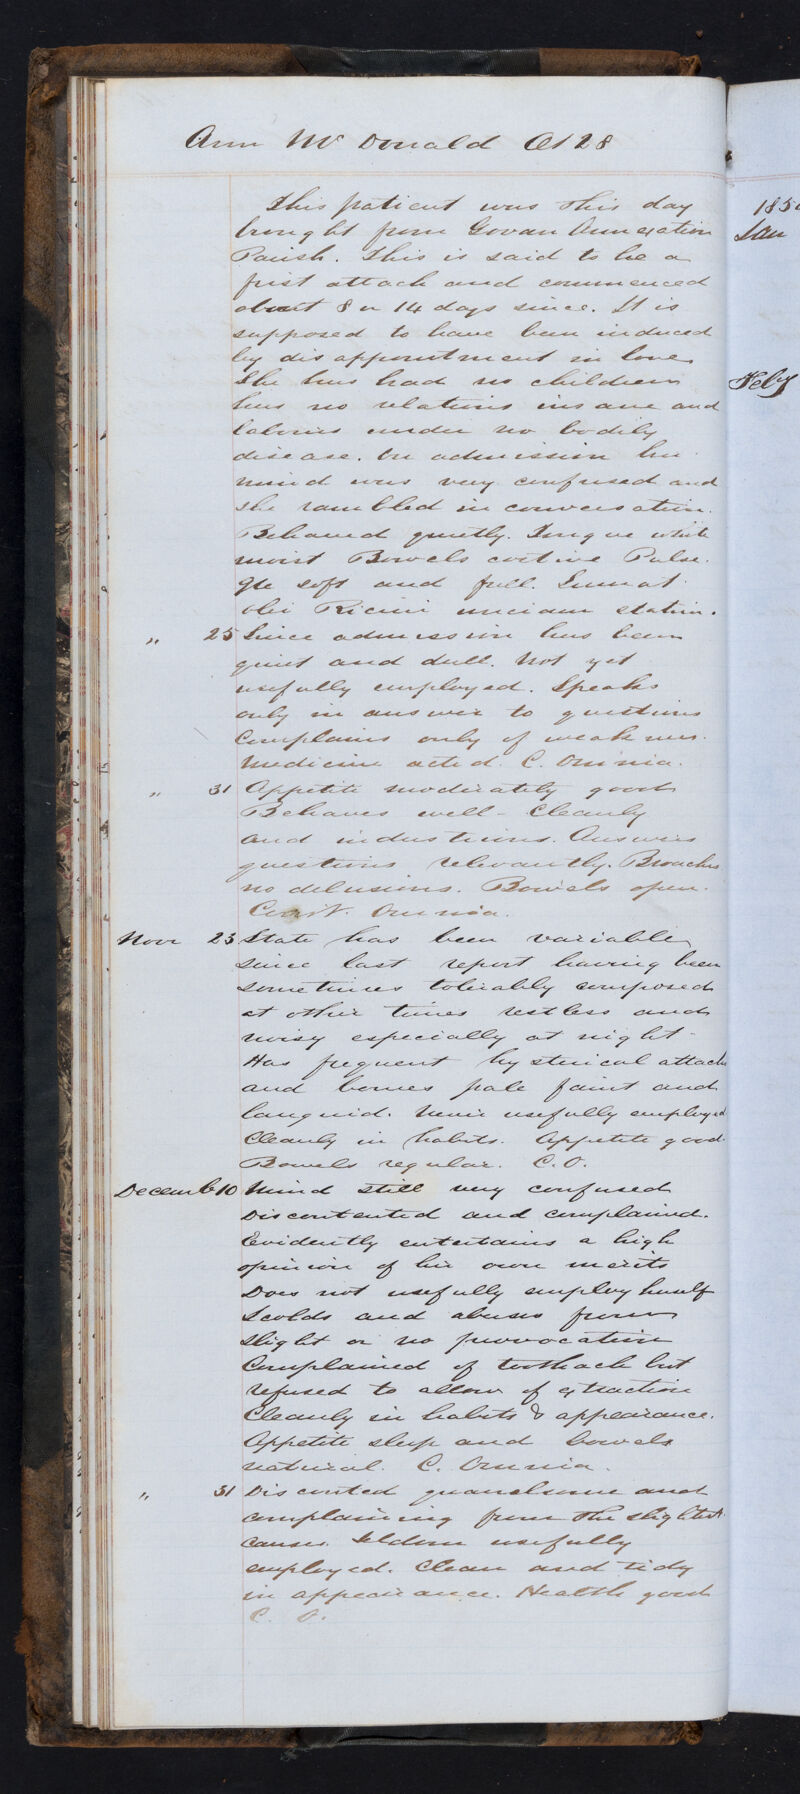 Ann Mc Donald Æt 28
This patient was this day
brought from Govan Annexation
Parish. This is said to be a
first attack and commenced
about 8 or 14 days since. It is
supposed to have been induced
by disappointment in love
She has had no children
has no relations insane and
labours under no bodily
disease. On admission her
mind was very confused and
she rambled in conversation.
Behaved quietly. Tongue white
moist Bowels costive Pulse
soft and full. Sumat
olei Ricini unciam statim.
" 25 Since admission has been
quiet and dull. Not yet
usefully employed. Speaks
only in answer to questions
Complains only of weakness.
Medicine acted. C. Omnia.
" 31 Appetite moderately good
Behaves well - Cleanly
and industrious. Answers
questions relevantly. Broaches
no delusions. Bowels open.
Cont. Omnia.
Novr 23 State has been variable
since last report having been
sometimes tolerably composed
at other times restless and
noisy especially at night -
Has frequent hysterical attacks
and becomes pale faint and
languid. Never usefully employed
Cleanly in habits. Appetite good
Bowels regular. C. O.
Decemb 10 Mind still very confused
Discontented and complained.
Evidently entertains a high
opinion of her own merits
Does not usefully employ herself
Scolds and abuses from
slight or no provocation
Complained of toothach but
refused to allow of extraction
Cleanly in habits & appearance.
Appetite sleep and bowels
natural. C. Omnia.
" 31 Disconted quarrelsome and
complaining from the slightest
causes. Seldom usefully
employed. Clean and tidy
in appearance. Health good
C. O.
185
Jan
Feby